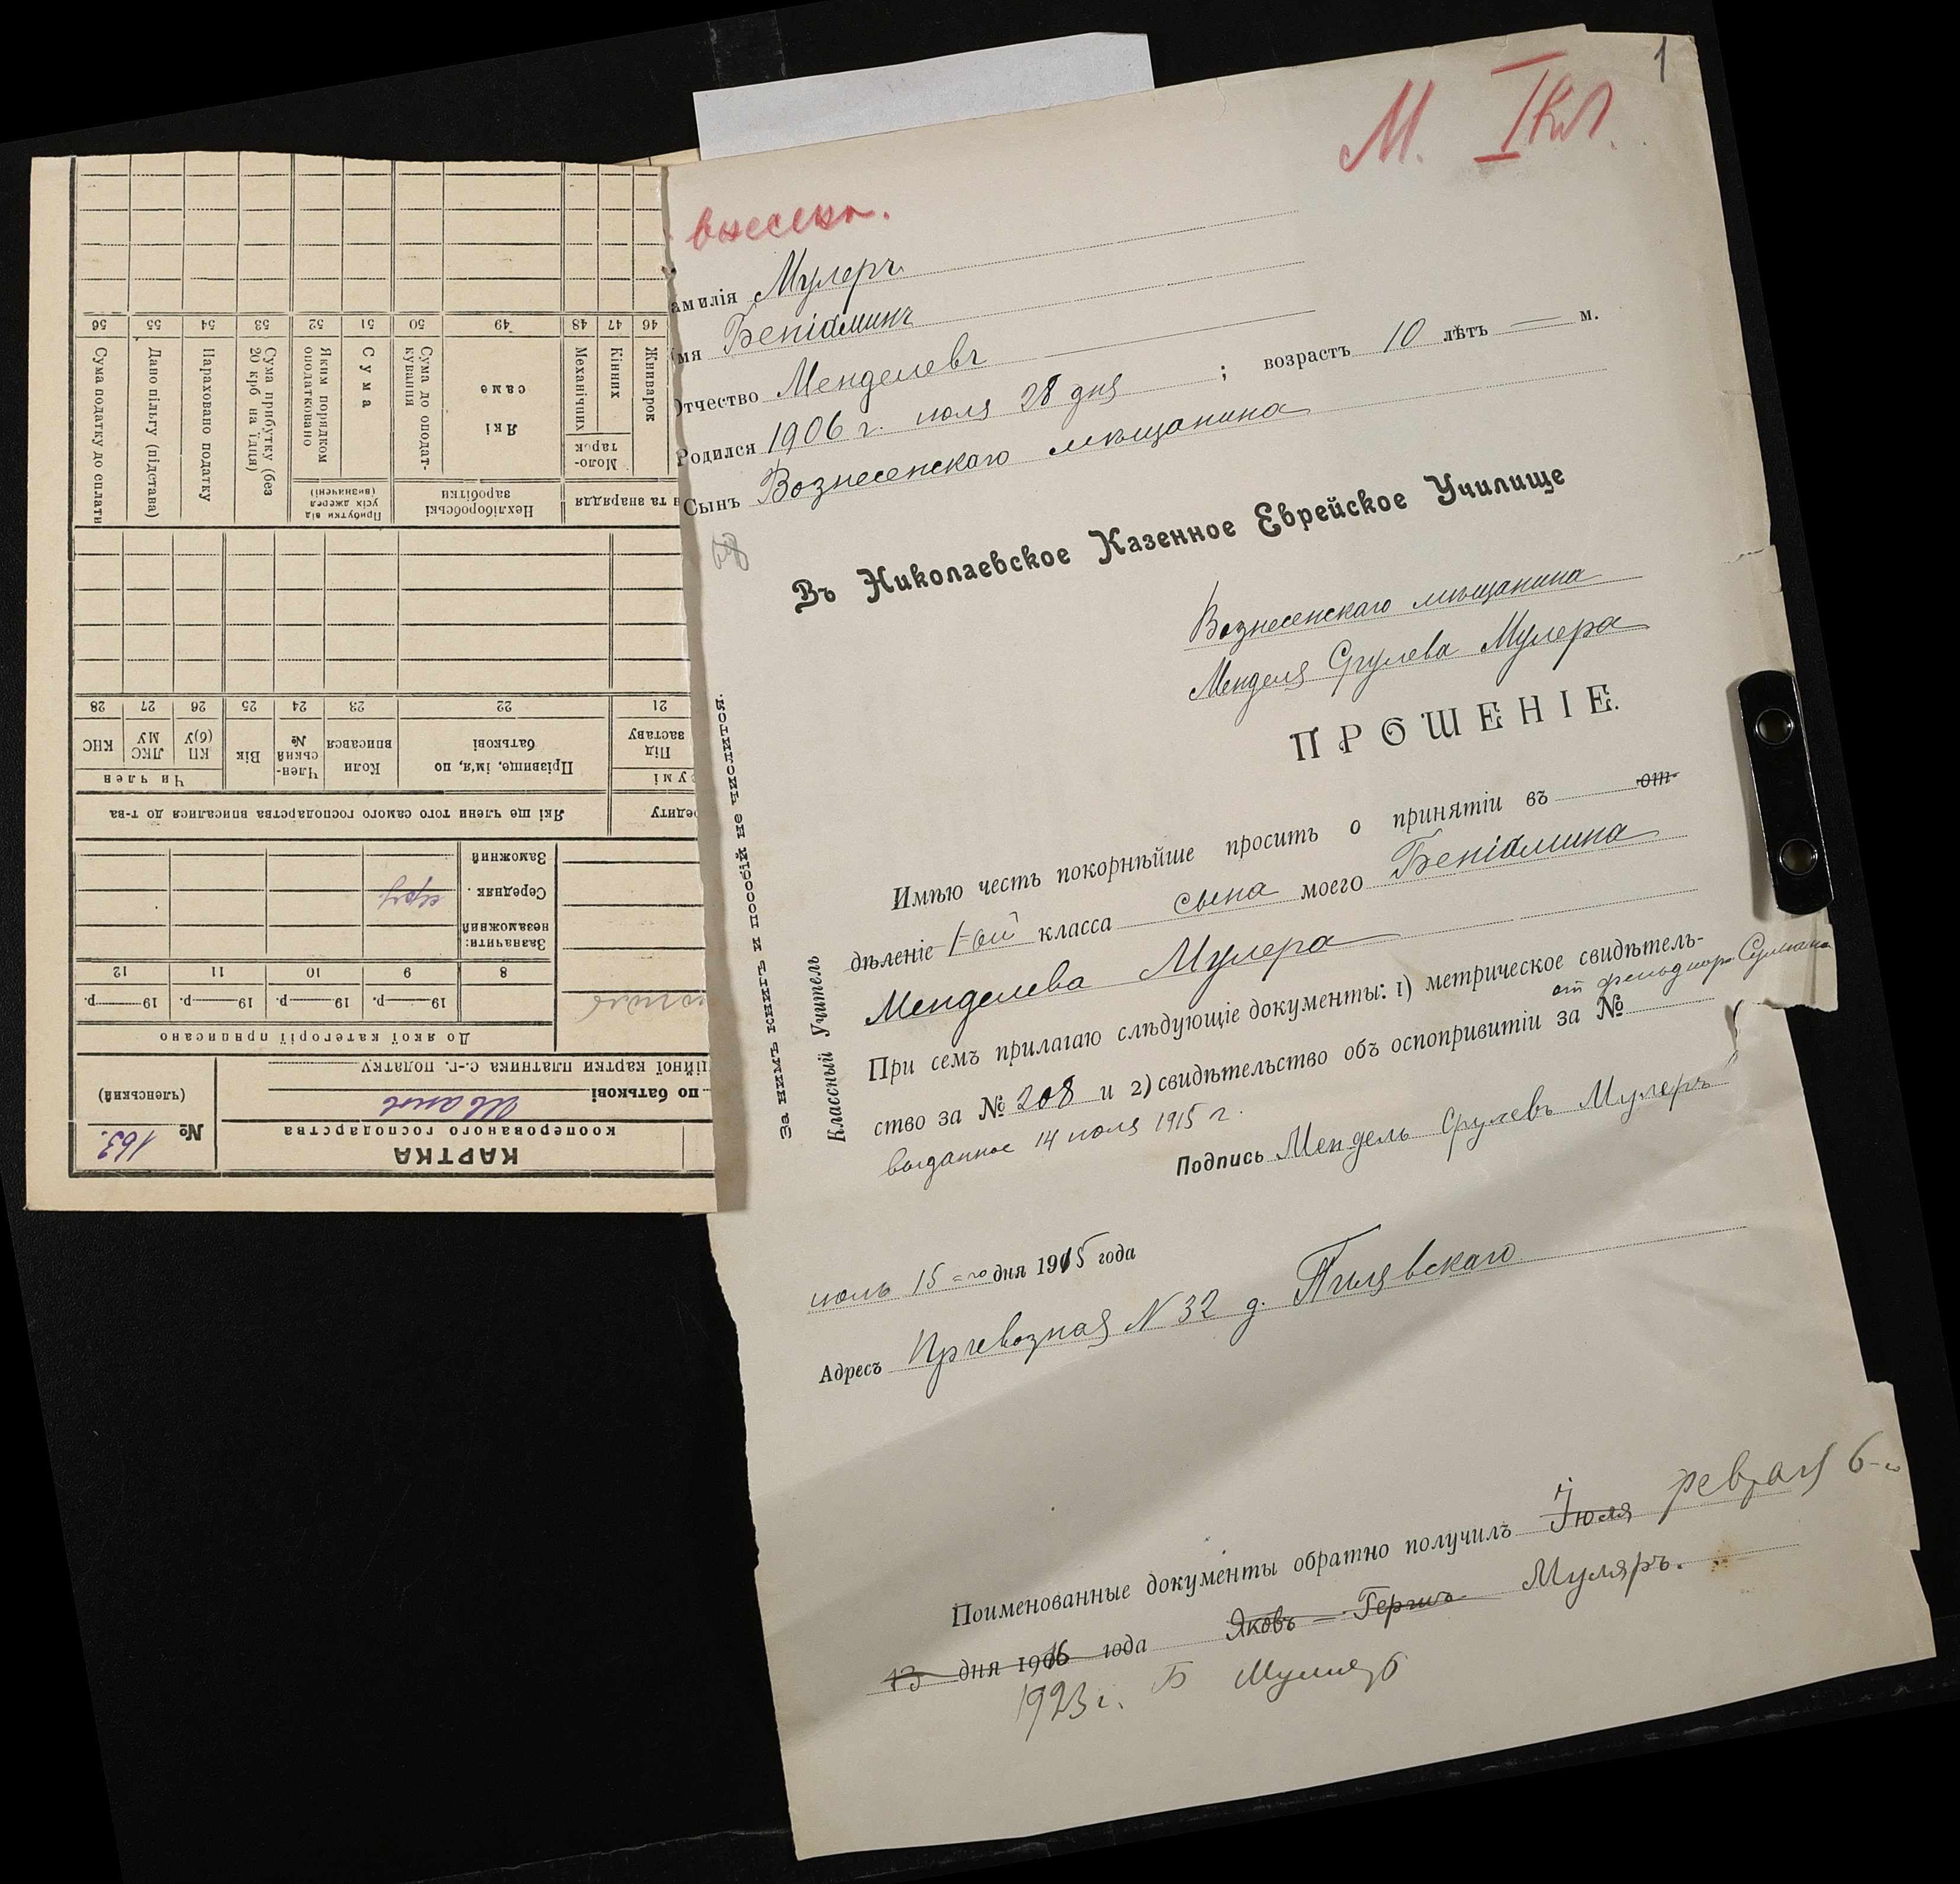 1
М. I кл.
внесен.
амилія Мулеръ
мя Беніаминъ
Отчество Менделевъ
Родился 1906 г. июля 28 дня ; возрастъ 10 лѣтъ — м.
Сынъ Вознесенскаго мѣщанина
Въ Николаевское Казенное Еврейское Училище
Вознесенскаго мѣщанина
Менделя Срулева Мулера
ПРОШЕНІЕ.
Имѣю честь покорнѣйше просить о принятіи въ от-
дѣленіе 1-ой класса сына моего Беніамина
Менделева Мулера
При семъ прилагаю слѣдующіе документы: 1) метрическое свидѣтель-
ство за № 208 и 2) свидѣтельство объ оспопривитіи за №
от фельдшера
выданное 14 июля 1915 г.
Подпись Мендель Срулевъ Мулеръ
июль 15-го дня 1915 года
Адресъ Привозная N 32 д. Пилявскаго
Поименованные документы обратно получилъ Іюля февраля 6-го
13 дня 1916 года Яковъ-Гершъ Муляръ.
1923 г. Б Муляръ
За нимъ книгъ и пособій не числится.
Классный Учитель
КАРТКА
кооперованого господарства
№ 163.
(членський)
по батькові Иванов
ційної картки платника с.-г. податку
До якої категорії приписано
19 р. 19 р. 19 р. 19 р.
8 9 10 11 12
Зазначити:
незаможний
Середняк
Заможний
редиту
Які ще члени того самого господарства вписалися до т-ва
сумі
Під заставу
Прізвище, ім'я, по батькові
Коли вписався
Член-ський №
Вік
Чи член
КП (б)У
ЛКС МУ
КНС
21 22 23 24 25 26 27 28
и та знаряддя
Нехліборобські заробітки
Прибутки від усіх джерел (визначені)
Жниварок
Моло-тарок
Кінних
Механічних
Які саме
Сума до оподат-кування
Сума
Яким порядком оподатковано
Сума прибутку (без 20 крб на їдця)
Нараховано податку
Дано пільгу (підстава)
Сума податку до сплати
46 47 48 49 50 51 52 53 54 55 56